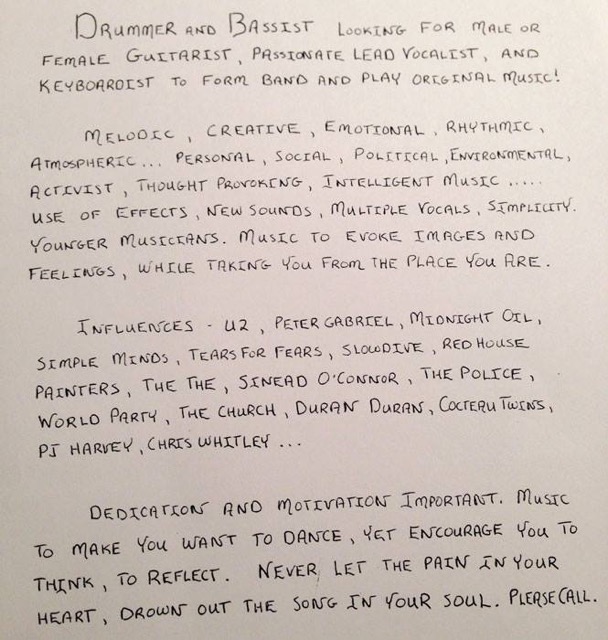 Drummer and Bassist looking for male or
female Guitarist, Passionate lead vocalist, and
keyboardist to form band and play original music!
Melodic, creative, emotional, rhythmic,
atmospheric... personal, social, political, environmental,
activist, thought provoking, intelligent music .....
use of effects, new sounds, multiple vocals, simplicity.
Younger musicians. Music to evoke images and
feelings, while taking you from the place you are.
Influences - U2, Peter Gabriel, Midnight Oil,
Simple Minds, Tears for Fears, Slowdive, Red House
Painters, The The, Sinead O'Connor, The Police,
World Party, The Church, Duran Duran, Cocteau Twins,
PJ Harvey, Chris Whitley ...
Dedication and motivation important. Music
to make you want to dance, yet encourage you to
think, to reflect. Never let the pain in your
heart, drown out the song in your soul. Please call.